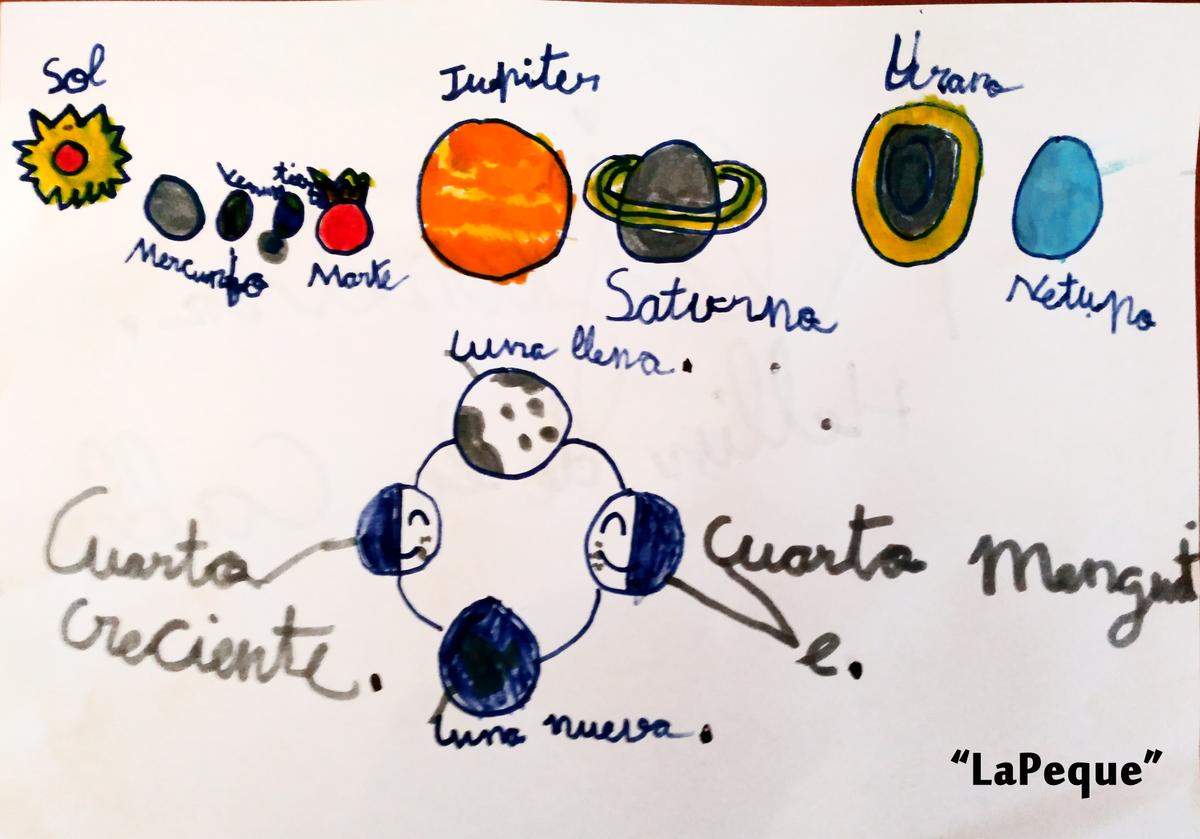 Sol
Jupiter
Urano
Venus
tierra
Mercurio
Marte
Saturno
Netuno
Luna llena.
Cuarto
creciente.
Cuarto Menguant
e.
Luna nueva.
“LaPeque”